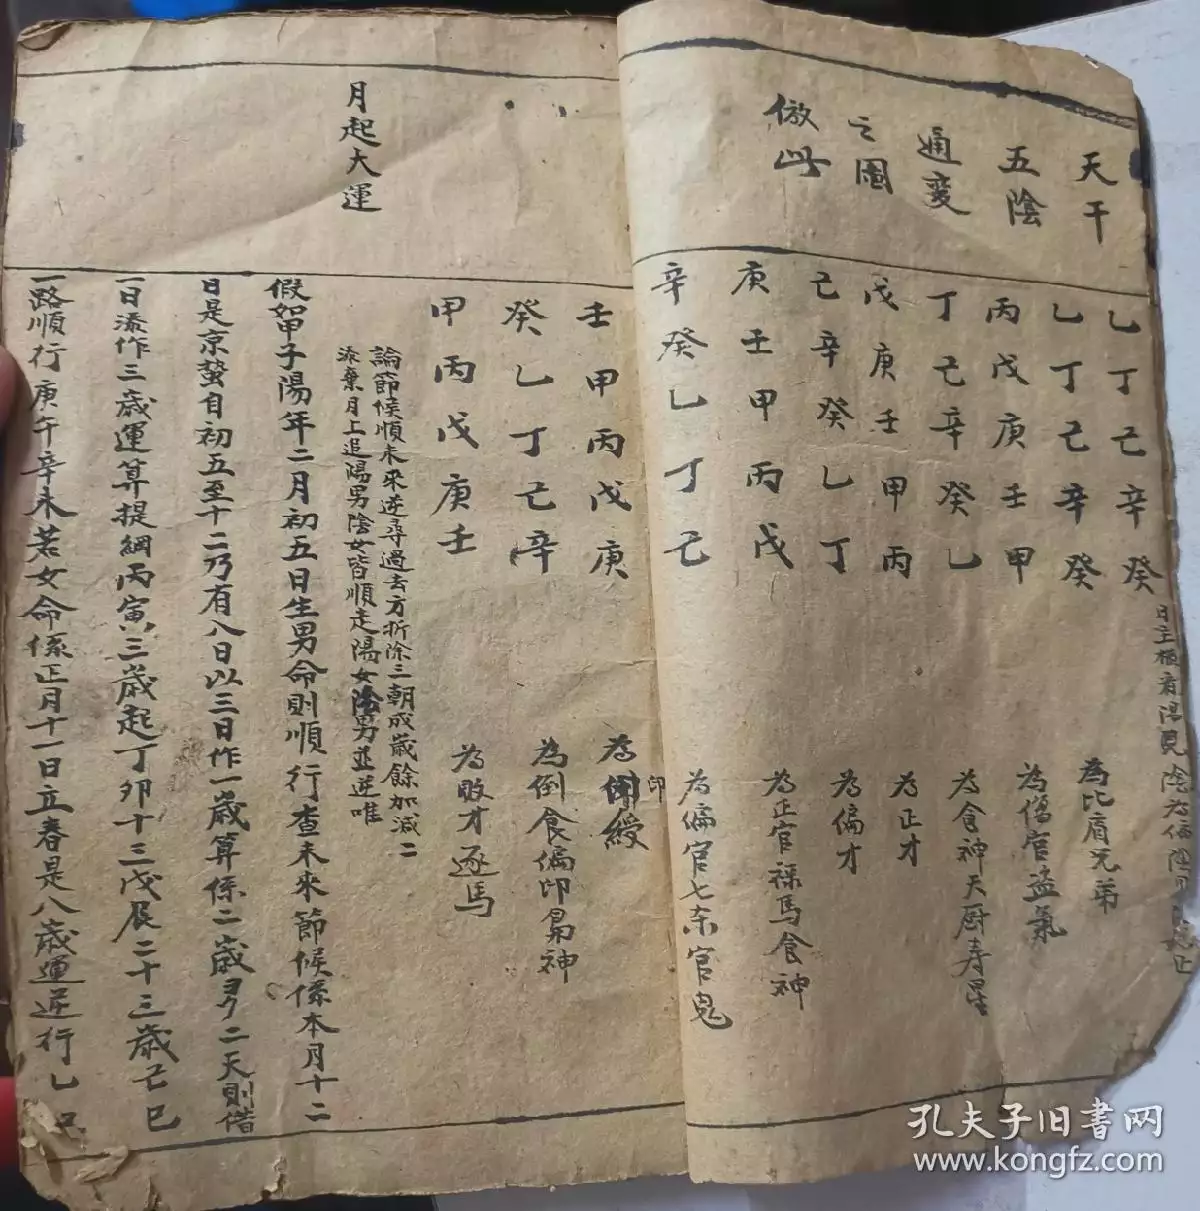 天干
五陰
通变
之圖
倣此
乙丁己辛癸
乙丁己辛癸 為比肩兄弟
丙戊庚壬甲 為傷官盗氣
丁己辛癸乙 為食神天厨寿星
戊庚壬甲丙 為正才
己辛癸乙丁 為偏才
庚壬甲丙戊 為正官祿馬食神
辛癸乙丁己 為偏官七杀官鬼
壬甲丙戊庚 為印綬
印
癸乙丁己辛 為倒食偏印梟神
甲丙戊庚壬 為敗才逐馬
月起大運
論節候順未來逆尋過去方折除三朝成歲餘加減二
添棄月上追陽男陰女皆順走陽女陰男並逆唯
假如甲子陽年二月初五日生男命則順行查未來節候係本月十二
日是京蟄自初五至十二乃有八日以三日作一歲算係二歲欠二天則借
一日添作三歲運算提綱丙寅三歲起丁卯十三戊辰二十三歲己巳
一路順行庚午辛未若女命係正月十一日立春是八歲運逆行乙丑
孔夫子旧书网
www.kongfz.com